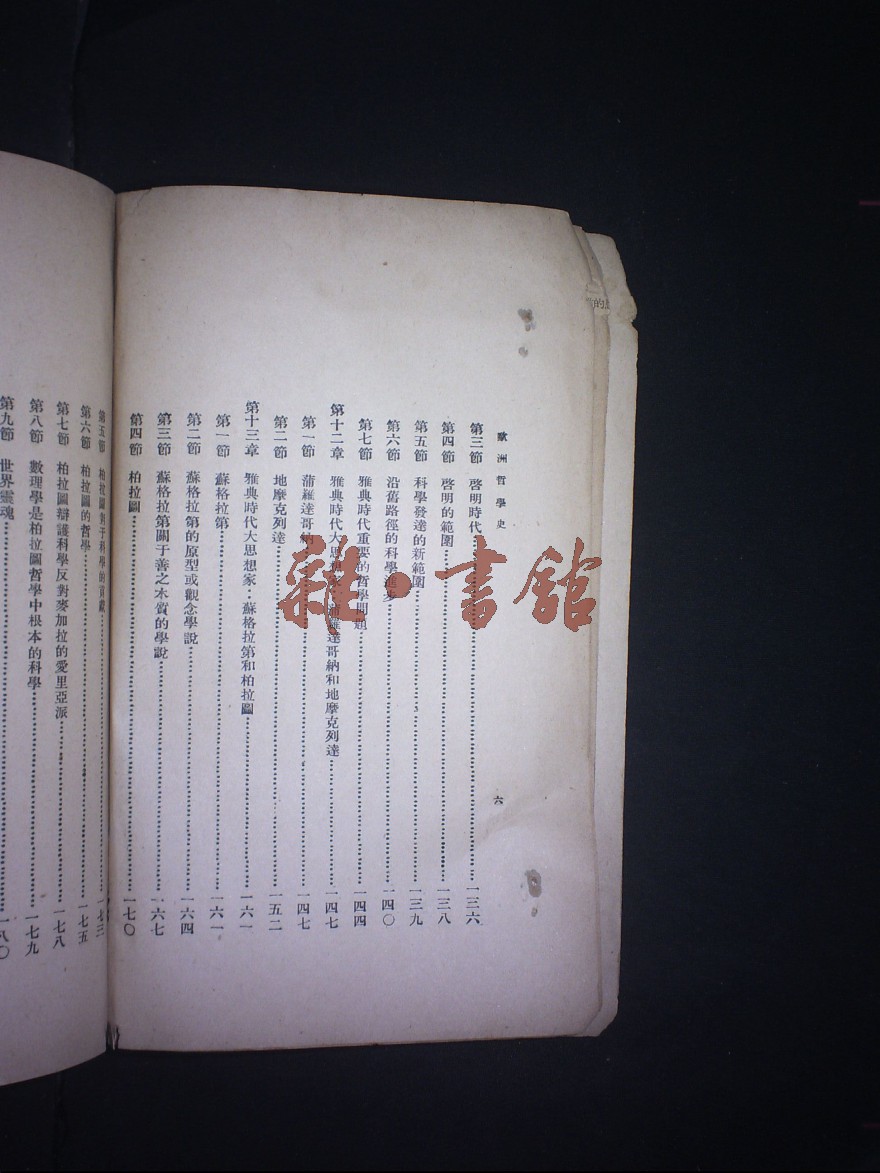 歐洲哲學史
第三節 啓明時代 一三六
第四節 啓明的範圍 一三八
第五節 科學發達的新範圍 一三九
第六節 沿舊路徑的科學進步 一四〇
第七節 雅典時代重要的哲學問題 一四四
第十二章 雅典時代大思想家：蒲羅達哥納和地摩克列達 一四七
第一節 蒲羅達哥納 一四七
第二節 地摩克列達 一五二
第十三章 雅典時代大思想家：蘇格拉第和柏拉圖 一六一
第一節 蘇格拉第 一六一
第二節 蘇格拉第的原型或觀念學說 一六四
第三節 蘇格拉第關于善之本質的學說 一六七
第四節 柏拉圖 一七〇
六
第五節 柏拉圖對于科學的貢獻 一七三
第六節 柏拉圖的哲學 一七五
第七節 柏拉圖辯護科學反對麥加拉的愛里亞派 一七八
第八節 數理學是柏拉圖哲學中根本的科學 一七九
第九節 世界靈魂 一八〇
雜·書館